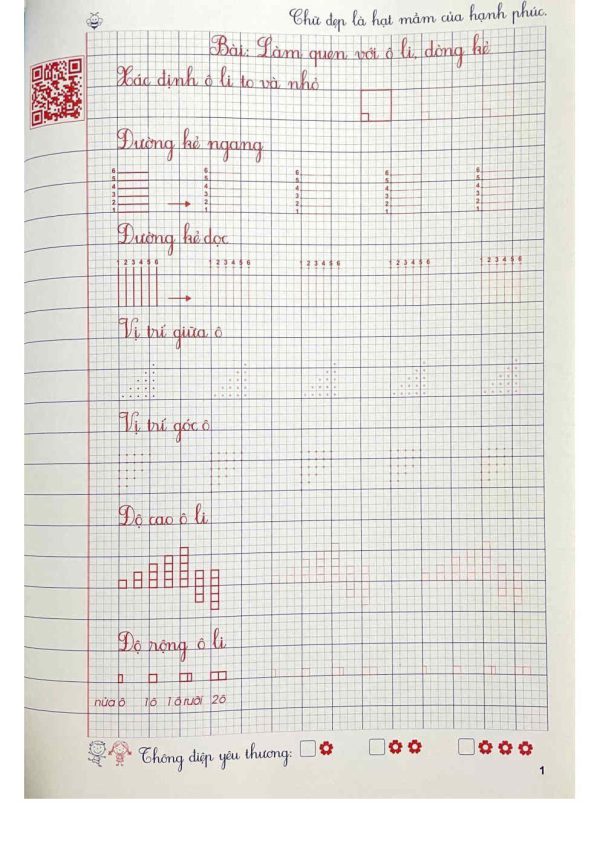 Chữ đẹp là hạt mầm của hạnh phúc.
Bài: Làm quen với ô li, dòng kẻ
Xác định ô li to và nhỏ
Đường kẻ ngang
6 6 6 6 6
5 5 5 5 5
4 4 4 4 4
3 3 3 3 3
2 2 2 2 2
1 1 1 1 1
Đường kẻ dọc
1 2 3 4 5 6 1 2 3 4 5 6 1 2 3 4 5 6 1 2 3 4 5 6 1 2 3 4 5 6
Vị trí giữa ô
Vị trí góc ô
Độ cao ô li
Độ rộng ô li
nửa ô 1ô 1ô rưỡi 2ô
Thông điệp yêu thương:
1